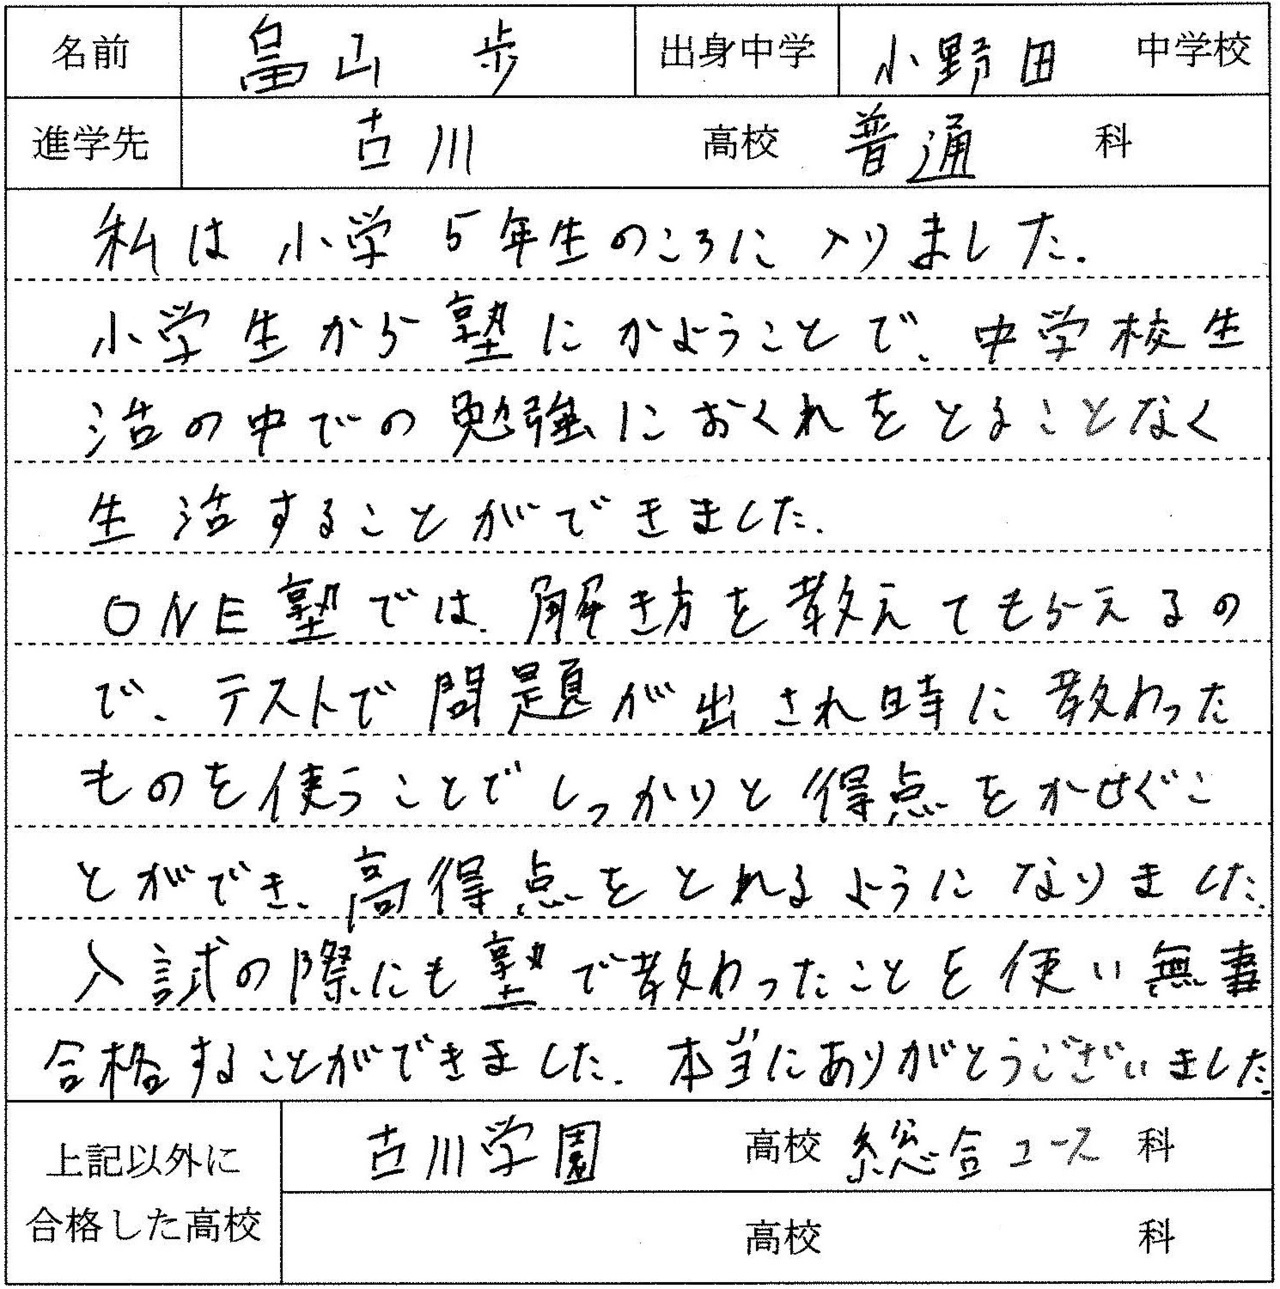 名前 畠山 歩 出身中学 小野田 中学校
進学先 古川 高校 普通 科
私は小学5年生のころに入りました.
小学生から塾にかようことで、中学校生
活の中での勉強におくれをとることなく
生活することができました.
ONE塾では、解き方を教えてもらえるの
で、テストで問題が出され時に教わった
ものを使うことでしっかりと得点をかせぐこ
とができ、高得点をとれるようになりました.
入試の際にも塾で教わったことを使い無事
合格することができました. 本当にありがとうございました.
上記以外に
合格した高校
古川学園 高校 総合コース 科
高校 科